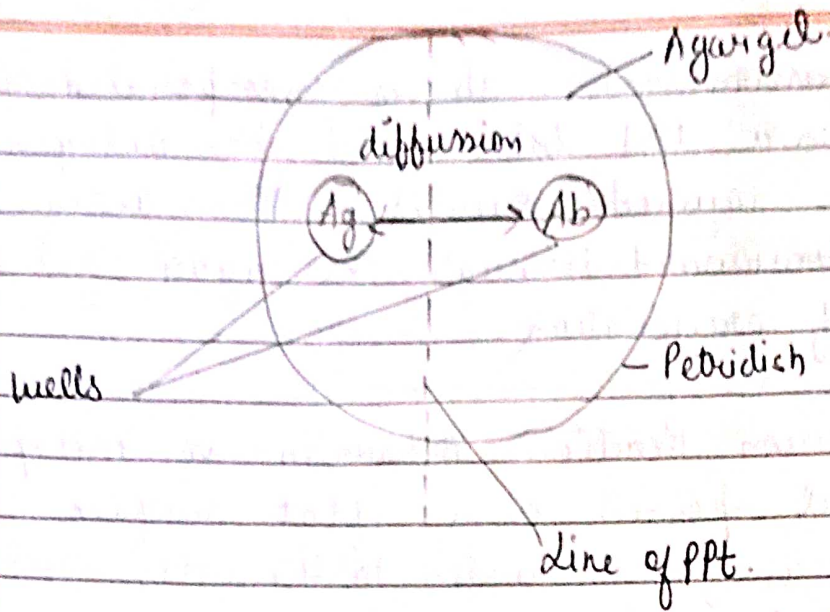 Agargel.
diffussion
Ag
Ab
wells
Petridish
Line of PPt.